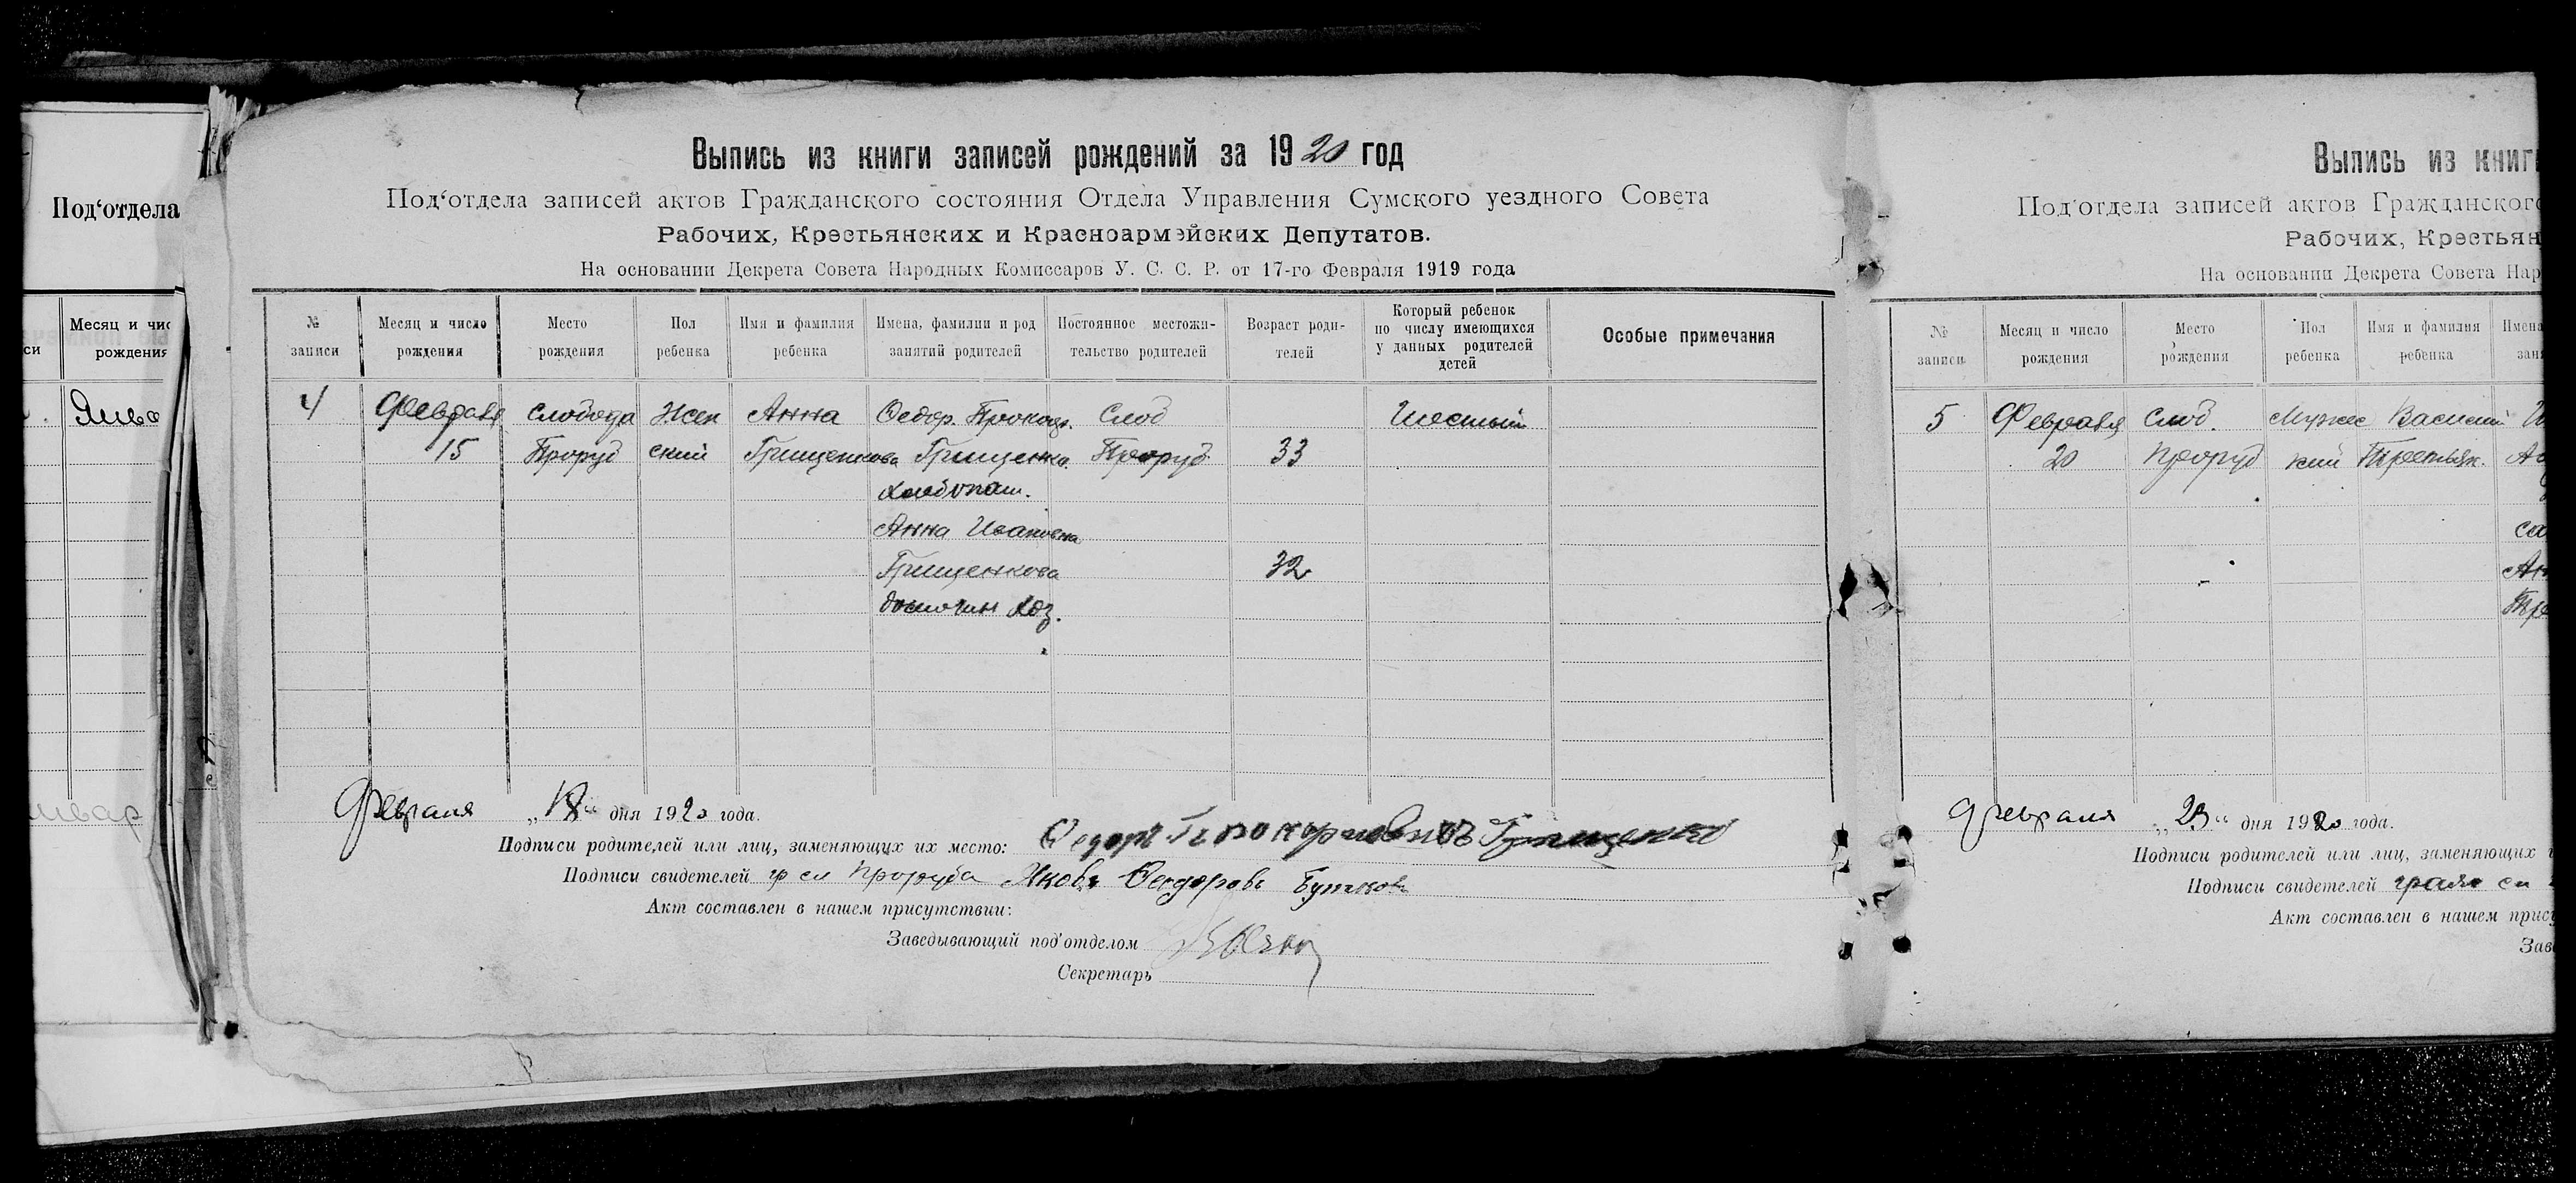 Под‘отдела
Месяц и чис
си рождения
Янва
Выпись из книги записей рождений за 1920 год
Под‘отдела записей актов Гражданского состояния Отдела Управления Сумского уездного Совета
Рабочих, Крестьянских и Красноармейских Депутатов.
На основании Декрета Совета Народных Комиссаров У. С. С. Р. от 17-го Февраля 1919 года
№ записи
Месяц и число рождения
Место рождения
Пол ребенка
Имя и фамилия ребенка
Имена, фамилии и род занятий родителей
Постоянное местожительство родителей
Возраст родителей
Который ребенок по числу имеющихся у данных родителей детей
Особые примечания
4 Февраля слобода Жен Анна Федор. Слод Шестый
15 Проруб ский Грищенкова Грищенко. Проруб 33
хлебопаш.
Анна Ивановна
Грищенкова 32
домошн хоз.
Февраля „18“ дня 1920 года.
Подписи родителей или лиц, заменяющих их место: Федоръ Грищенко
Подписи свидетелей гр сл Проруба Яковъ Федоровъ
Акт составлен в нашем присутствии:
Заведывающий под‘отделом
Секретарь
Выпись из книги
Под‘отдела записей актов Гражданского
Рабочих, Крестьян
На основании Декрета Совета Нар
№ записи
Месяц и число рождения
Место рождения
Пол ребенка
Имя и фамилия ребенка
Имена
заня
5 Февраля Слод. Мужес Василий
20 Проруб кий Третьяк.
Февраля „23“ дня 1920 года.
Подписи родителей или лиц, заменяющих
Подписи свидетелей граж сл
Акт составлен в нашем прису
Заве